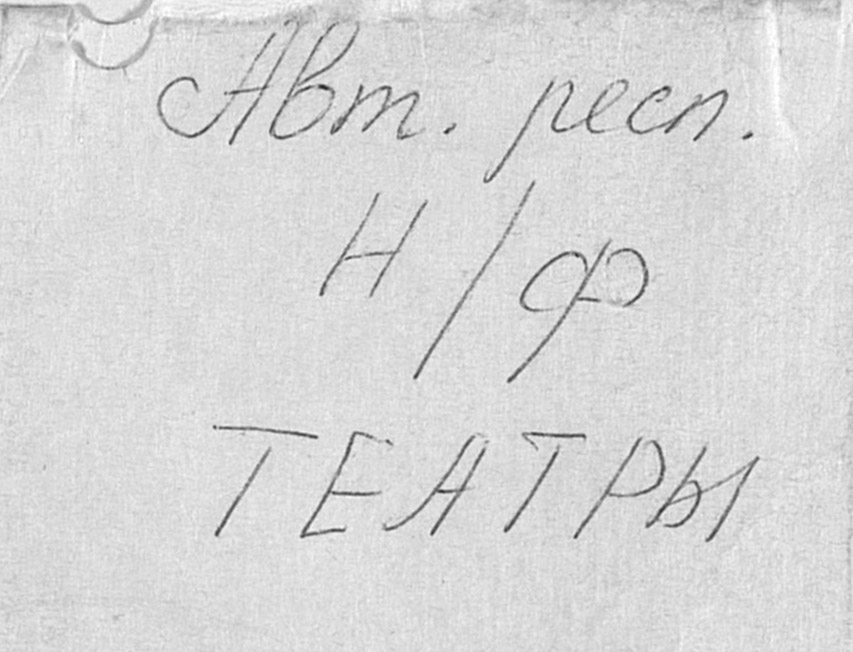 Авт. респ.
Н/Ф
ТЕАТРЫ